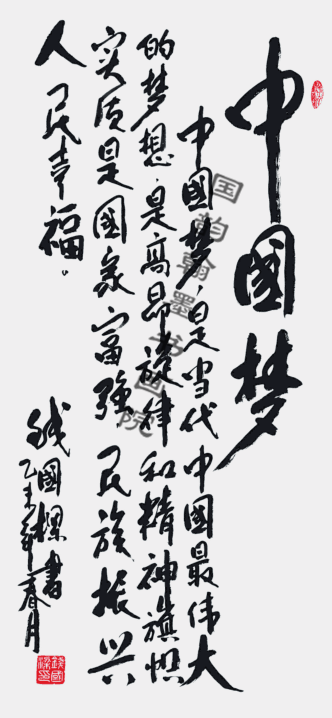 中國梦
中國梦，是当代中國最伟大
的梦想，是高昂旋律和精神旗帜
实质是國家富强民族振兴
人民幸福。
钱國樑書
乙未年春月
国韵翰墨书画院